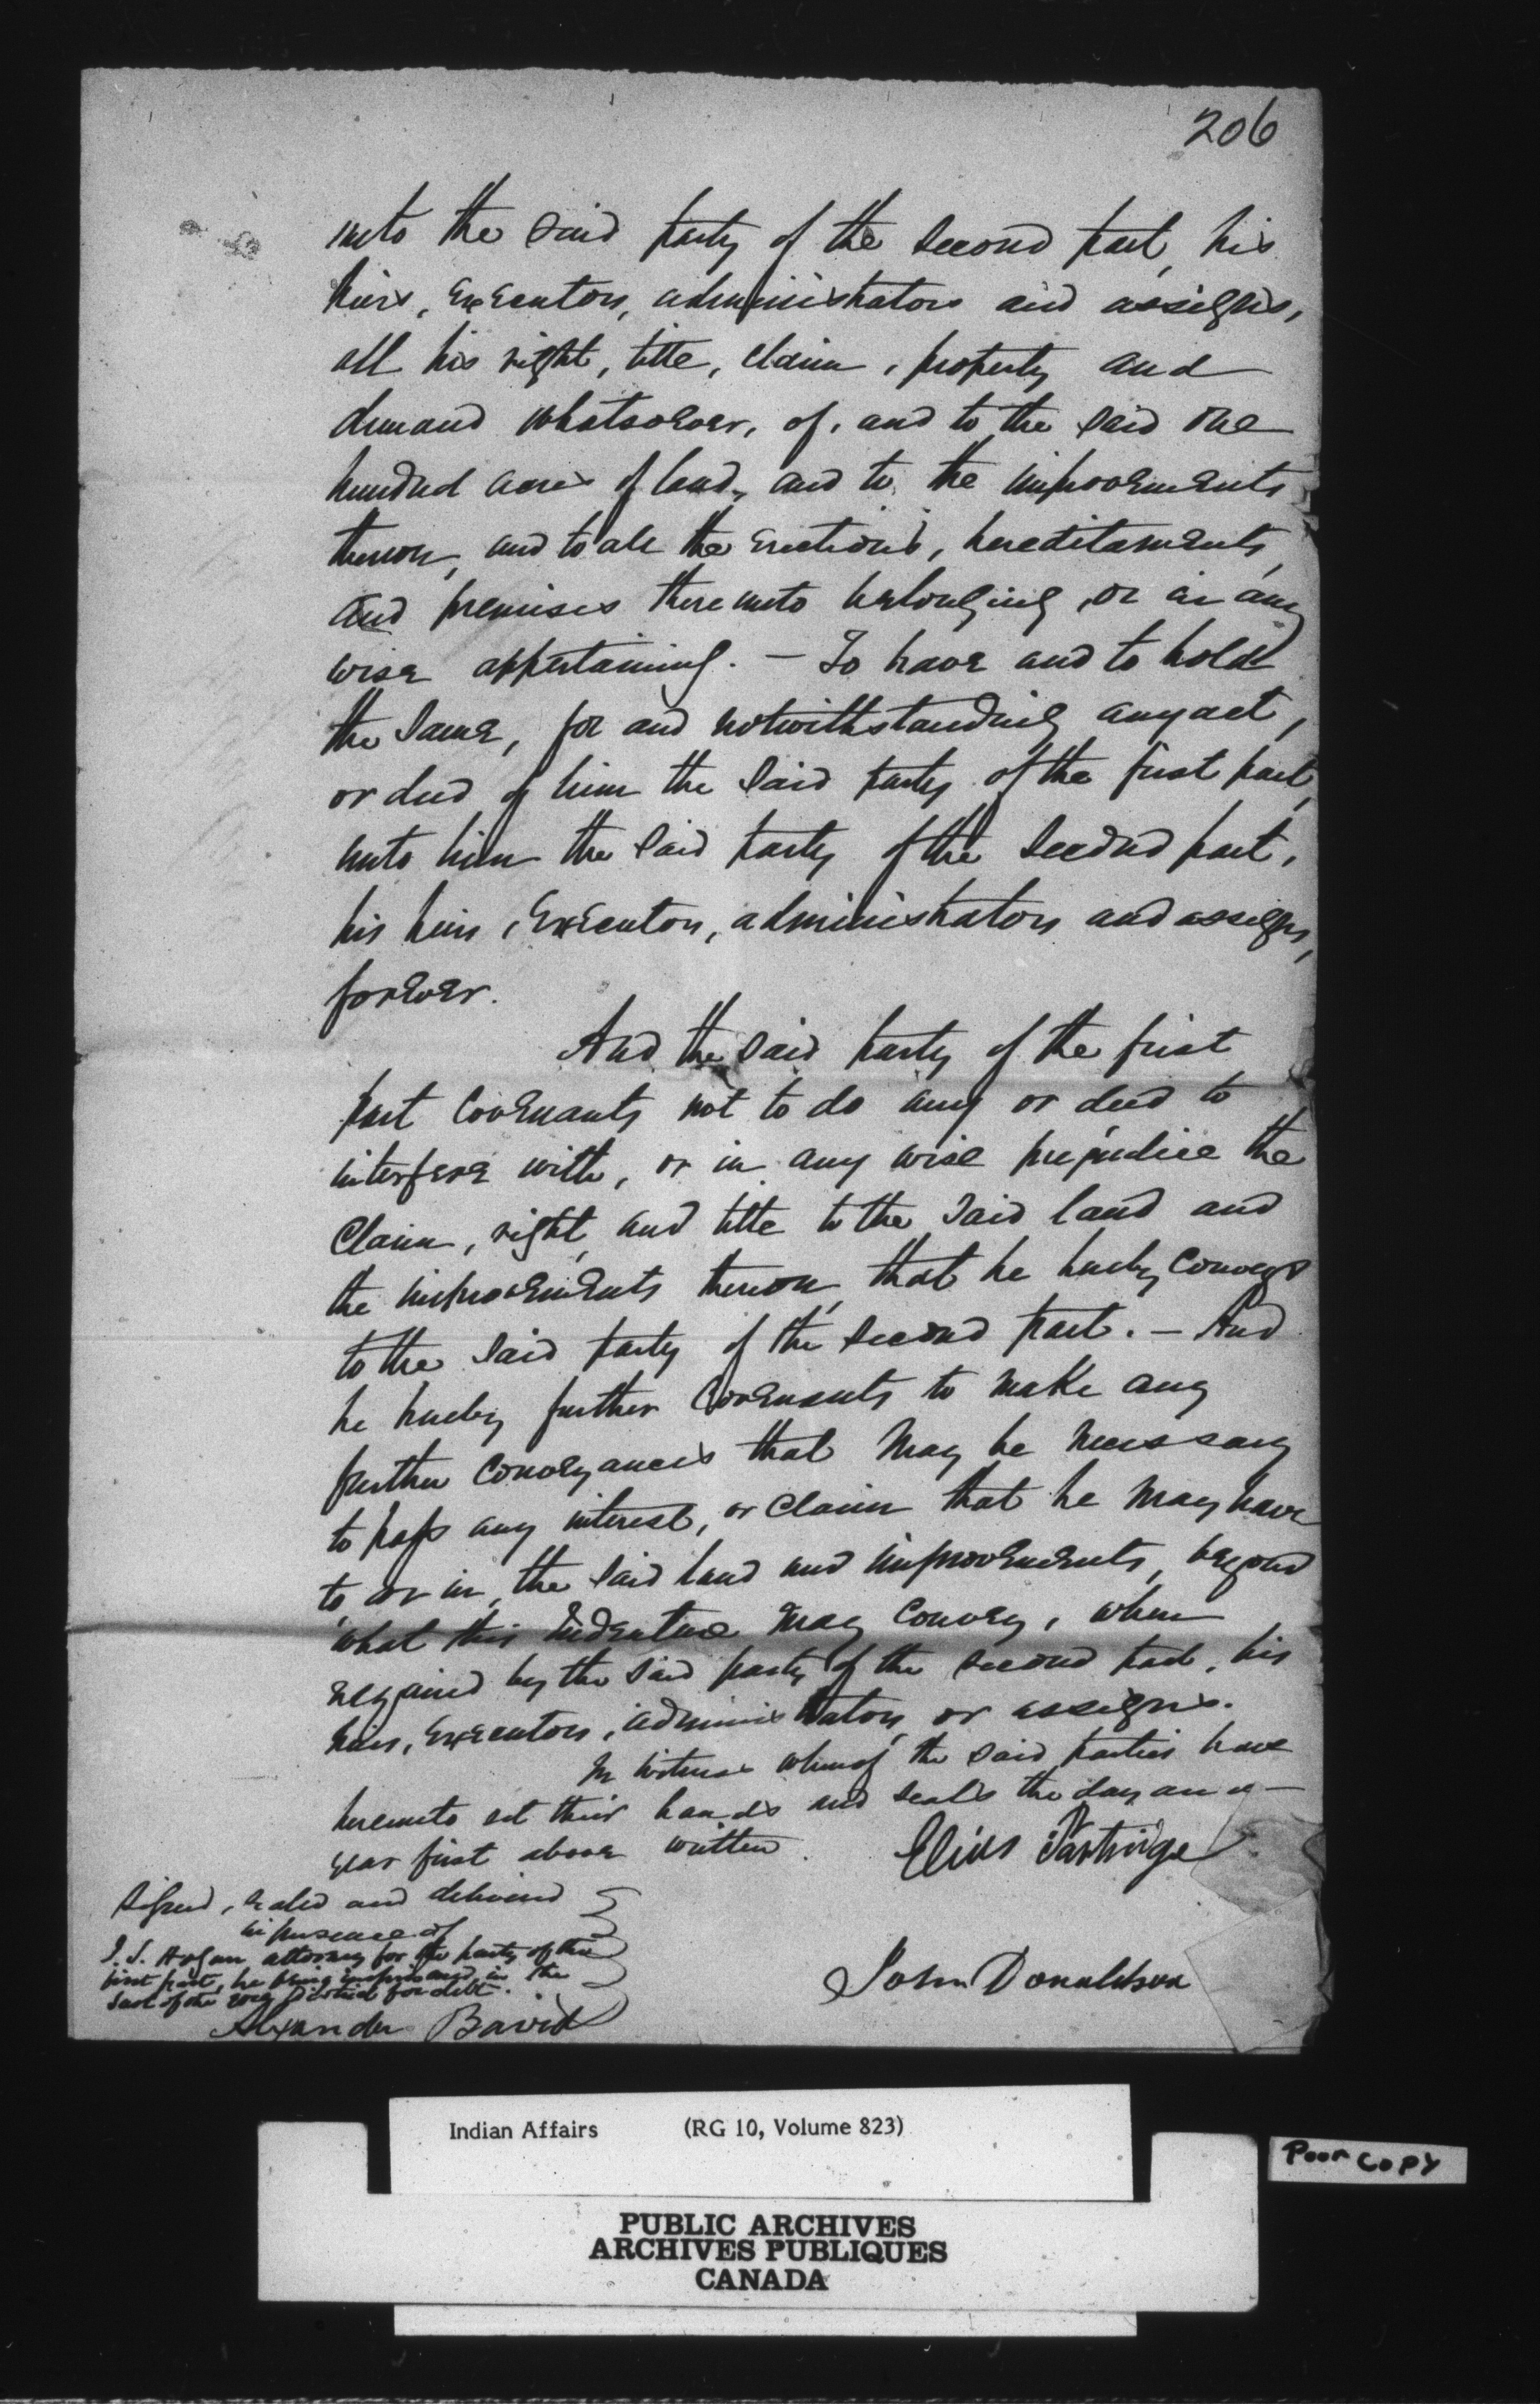 206
unto the said party of the second part, his
heirs, Executors, administrators and assigns,
all his right, title, claim, property and
demand whatsoever, of, and to the said one
hundred acres of land, and to the improvements
thereon, and to all the erections, hereditaments,
and premises thereunto belonging, or in any
wise appertaining. — To have and to hold
the same, for and notwithstanding any act,
or deed of him the said party of the first part,
unto him the said party of the second part,
his heirs, Executors, administrators and assigns,
forever.
And the said party of the first
part covenants not to do any or deed to
interfere with, or in any wise prejudice the
Claim, right, and title to the said land and
the improvements thereon, that he hereby conveys
to the said party of the second part. — And
he hereby further covenants to make any
further conveyances that may be necessary
to pass any interest, or claim that he may have
to or in, the said land and improvements, beyond
what this Indenture may convey, when
required by the said party of the second part, his
heirs, Executors, administrators, or assigns.
In witness whereof the said parties have
hereunto set their hands and seals the day and
year first above written.
Elias Partridge
Signed, sealed and delivered
in presence of
J. S. Hogan attorney for the party of the
first part, he being imprisoned in the
Jail of the District for debt.
John Donaldson
Alexander David
Indian Affairs (RG 10, Volume 823)
Poor Copy
PUBLIC ARCHIVES
ARCHIVES PUBLIQUES
CANADA